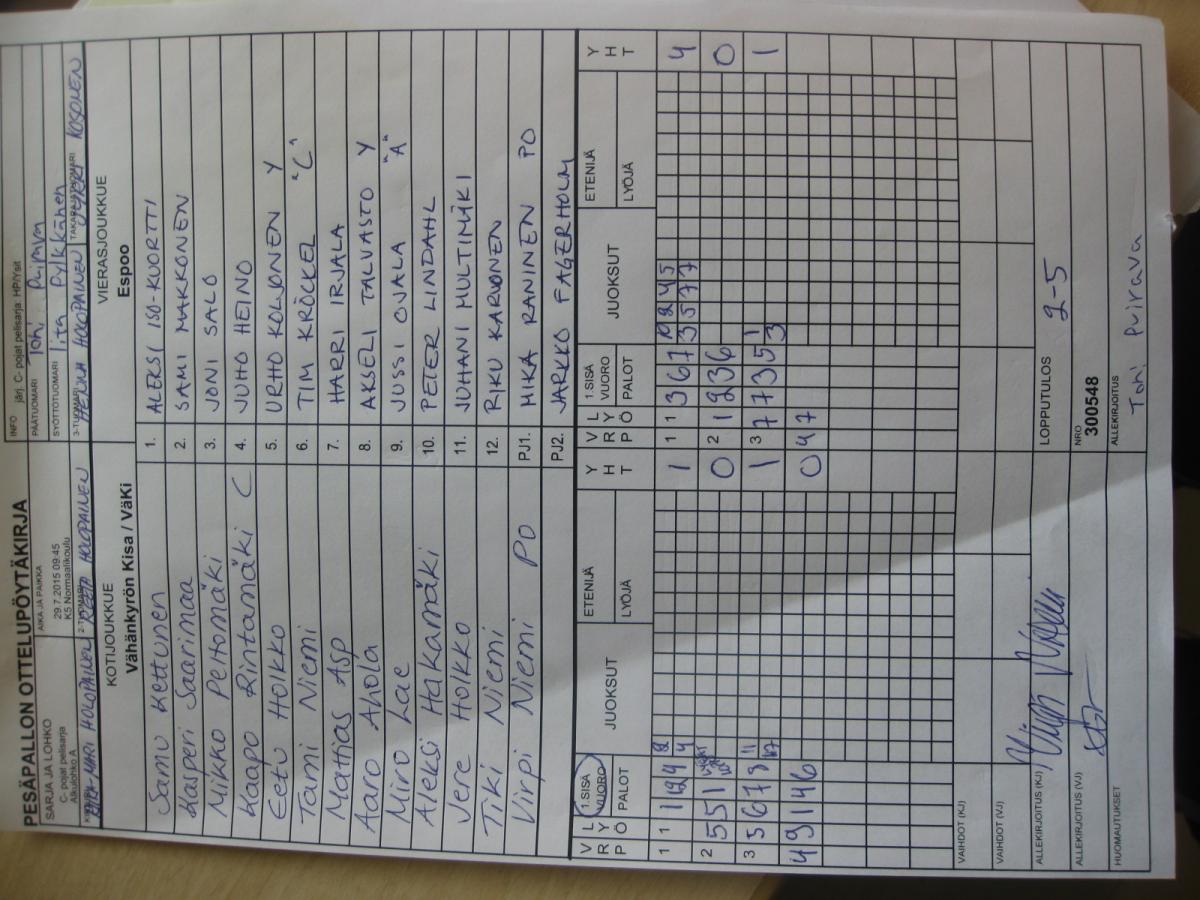 PESÄPALLON OTTELUPÖYTÄKIRJA
INFO järj. C- pojat pelisarja: HP/Ysit
SARJA JA LOHKO
C- pojat pelisarja
Alkulohko A
AIKA JA PAIKKA
29.7.2015 09:45
K5 Normaalikoulu
PÄÄTUOMARI Toni Puirava
SYÖTTÖTUOMARI Iita Pylkkänen
2-TUOMARI
3-TUOMARI
HOLOPAINEN
HOLOPAINEN
HOLOPAINEN
KOSONEN
KOTIJOUKKUE
Vähänkyrön Kisa / VäKi
VIERASJOUKKUE
Espoo
Samu Kettunen 1. ALEKSI ISO-KUORTTI
Kasperi Saarimaa 2. SAMI MAKKONEN
Mikko Peltomäki 3. JONI SALO
Kaapo Rintamäki C 4. JUHO HEINO
Eetu Hoikko 5. URHO KOLJONEN Y
Tami Niemi 6. TIM KRÖCKEL "C"
Mattias Asp 7. HARRI IRJALA
Aaro Ahola 8. AKSELI TALVASTO Y
Miro Lae 9. JUSSI OJALA "A"
Aleksi Hakamäki 10. PETER LINDAHL
Jere Hoikko 11. JUHANI MULTIMÄKI
Tiki Niemi 12. RIKU KARVONEN
Virpi Niemi PO PJ1. MIKA RANINEN PO
PJ2. JARKKO FAGERHOLM
V R P L Y Ö 1.SISÄ VUORO PALOT JUOKSUT ETENIJÄ LYÖJÄ Y H T V R P L Y Ö 1.SISÄ VUORO PALOT JUOKSUT ETENIJÄ LYÖJÄ Y H T
1 1 1 2 4 1 1 1 3 6 7 10 2 4 5 4
3 5 7 7
2 5 5 1 0 2 1 2 3 6 0
3 5 6 7 8 11 1 3 7 7 3 5 1 1
3
4 9 1 4 6 0 4 7
VAIHDOT (KJ)
VAIHDOT (VJ)
ALLEKIRJOITUS (KJ) LOPPUTULOS 2-5
ALLEKIRJOITUS (VJ) NRO 300548
HUOMAUTUKSET ALLEKIRJOITUS Toni Puirava